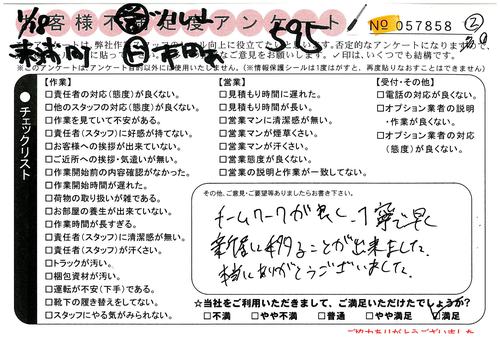 お客様不満足度アンケート
No 057858
②
595
※このアンケートはアンケート目的以外には使用いたしません。(※情報保護シールは1度はがすと、再度貼りなおすことはできません)
●チェックリスト
【作業】
□責任者の対応(態度)が良くない。
□他のスタッフの対応(態度)が良くない。
□作業を見ていて不安がある。
□責任者(スタッフ)に好感が持てない。
□お客様への挨拶が出来ていない。
□ご近所への挨拶・気遣いが無い。
□作業開始前の内容確認がなかった。
□作業開始時間が遅れた。
□荷物の取り扱いが雑である。
□お部屋の養生が出来ていない。
□作業時間が長すぎる。
□責任者(スタッフ)に清潔感が無い。
□責任者(スタッフ)が汗くさい。
□トラックが汚い。
□梱包資材が汚い。
□運転が不安(下手)である。
□靴下の履き替えをしてない。
□スタッフにやる気がみられない。
【営業】
□見積もり時間に遅れた。
□見積もり時間が長い。
□営業マンに清潔感が無い。
□営業マンが煙草くさい。
□営業マンが汗くさい。
□営業態度が良くない。
□営業の説明と作業が一致してない。
【受付・その他】
□電話の対応が良くない。
□オプション業者の説明
・作業が良くない。
□オプション業者の対応
(態度)が良くない。
その他、ご意見・ご要望等ありましたらお書き下さい。
チームワークが良く、丁寧で早く
新居に移ることが出来ました。
本当にありがとうございました。
☆当社をご利用いただきまして、ご満足いただけたでしょうか?
□不満 □やや不満 □普通 □やや満足 ☑満足
ご協力ありがとうございました